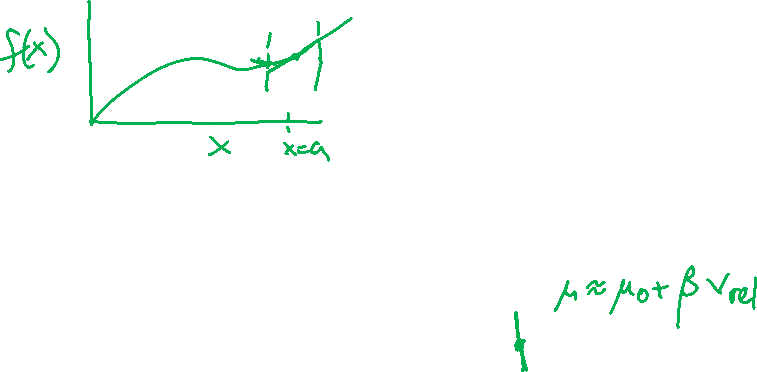 f(x)
x
x=a
μ≈μ₀+βv_rel